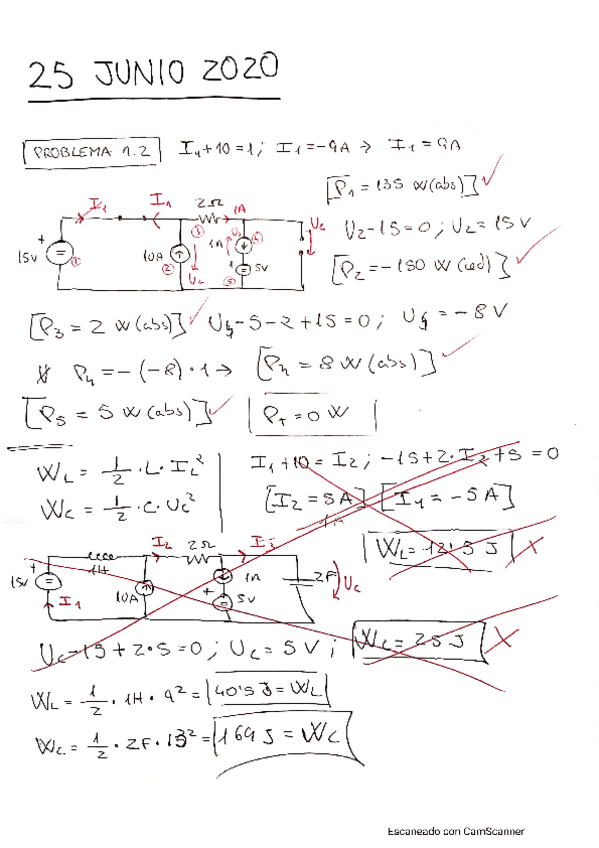 25 JUNIO 2020
PROBLEMA 1.2 I1+10=1; I1=-9A → I1=9A
[P1 = 135 W(abs)]
I1 I1 2Ω 1A
15V 10A 1A 5V Uc
U2-15=0; U2=15V
[P2=-150 W(ced)]
[P3 = 2 W(abs)] U4-5-2+15=0; U4=-8V
P4=-(-8)·1→ [P4 = 8 W(abs)]
[P5 = 5 W(abs)] PT=0W
WL = 1/2 · L · IL² I1+10=I2; -15+2·I2+5=0
WC = 1/2 · C · UC² [I2=5A] [I1=-5A]
WL=12'5 J X
I2 2Ω I3
15V 1H 10A 1A 5V 2F Uc
I1
Uc-15+2·5=0; Uc=5V; WC=25J X
WL = 1/2 · 1H · 9² = 40'5 J = WL
WC = 1/2 · 2F · 13² = 169 J = WC
Escaneado con CamScanner